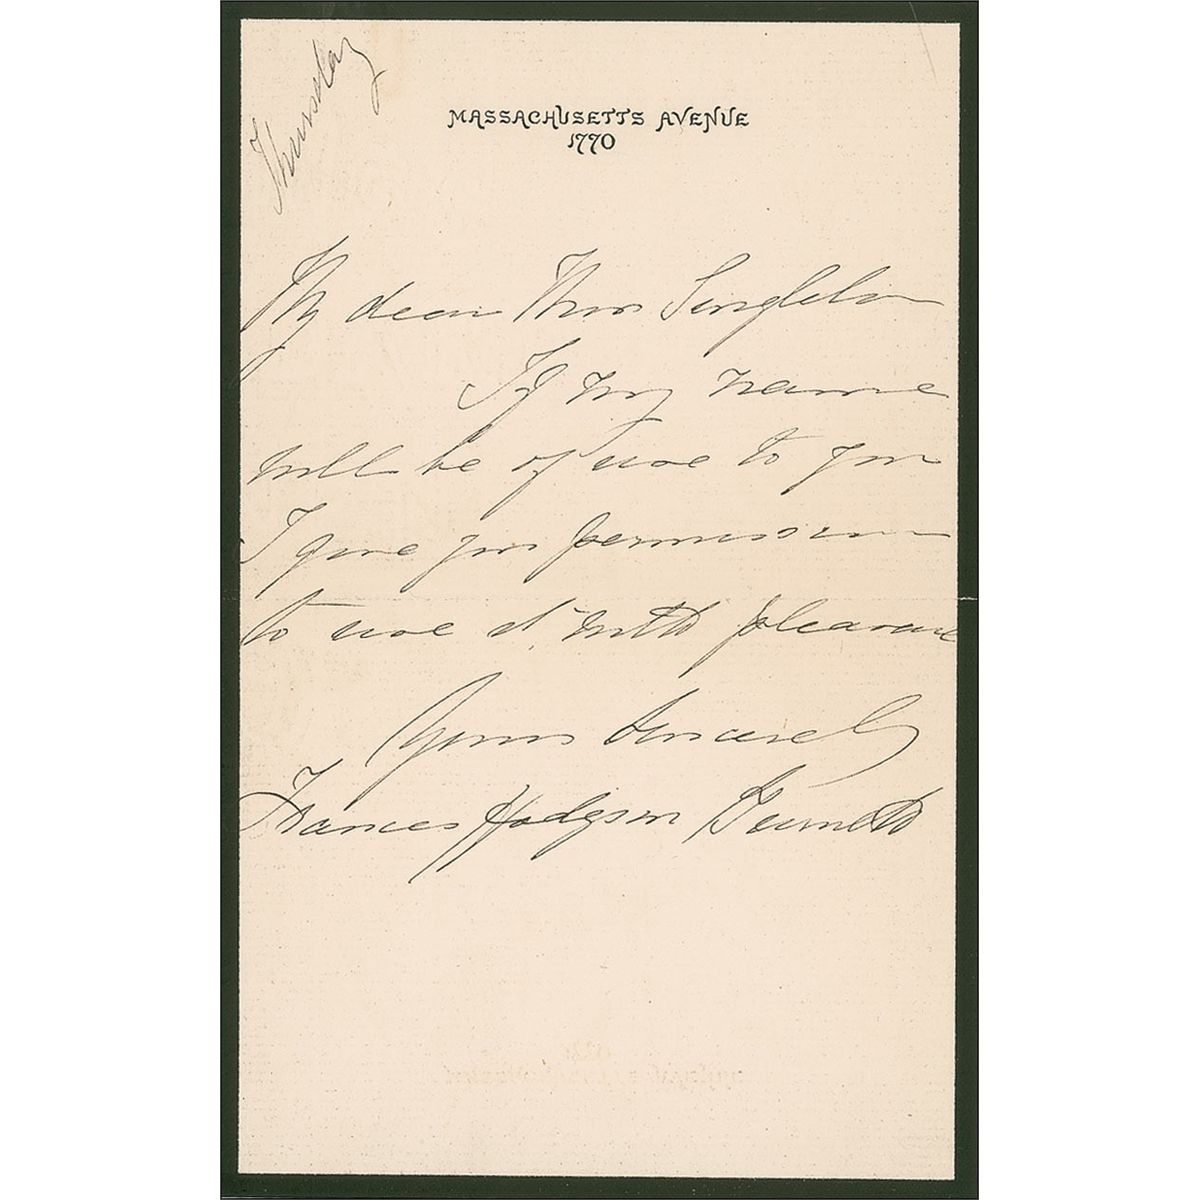 Thursday
MASSACHUSETTS AVENUE
1770
My dear Mrs. Singleton
If my name
will be of use to you
I give you permission
to use it with pleasure
Yours sincerely
Frances Hodgson Burnett